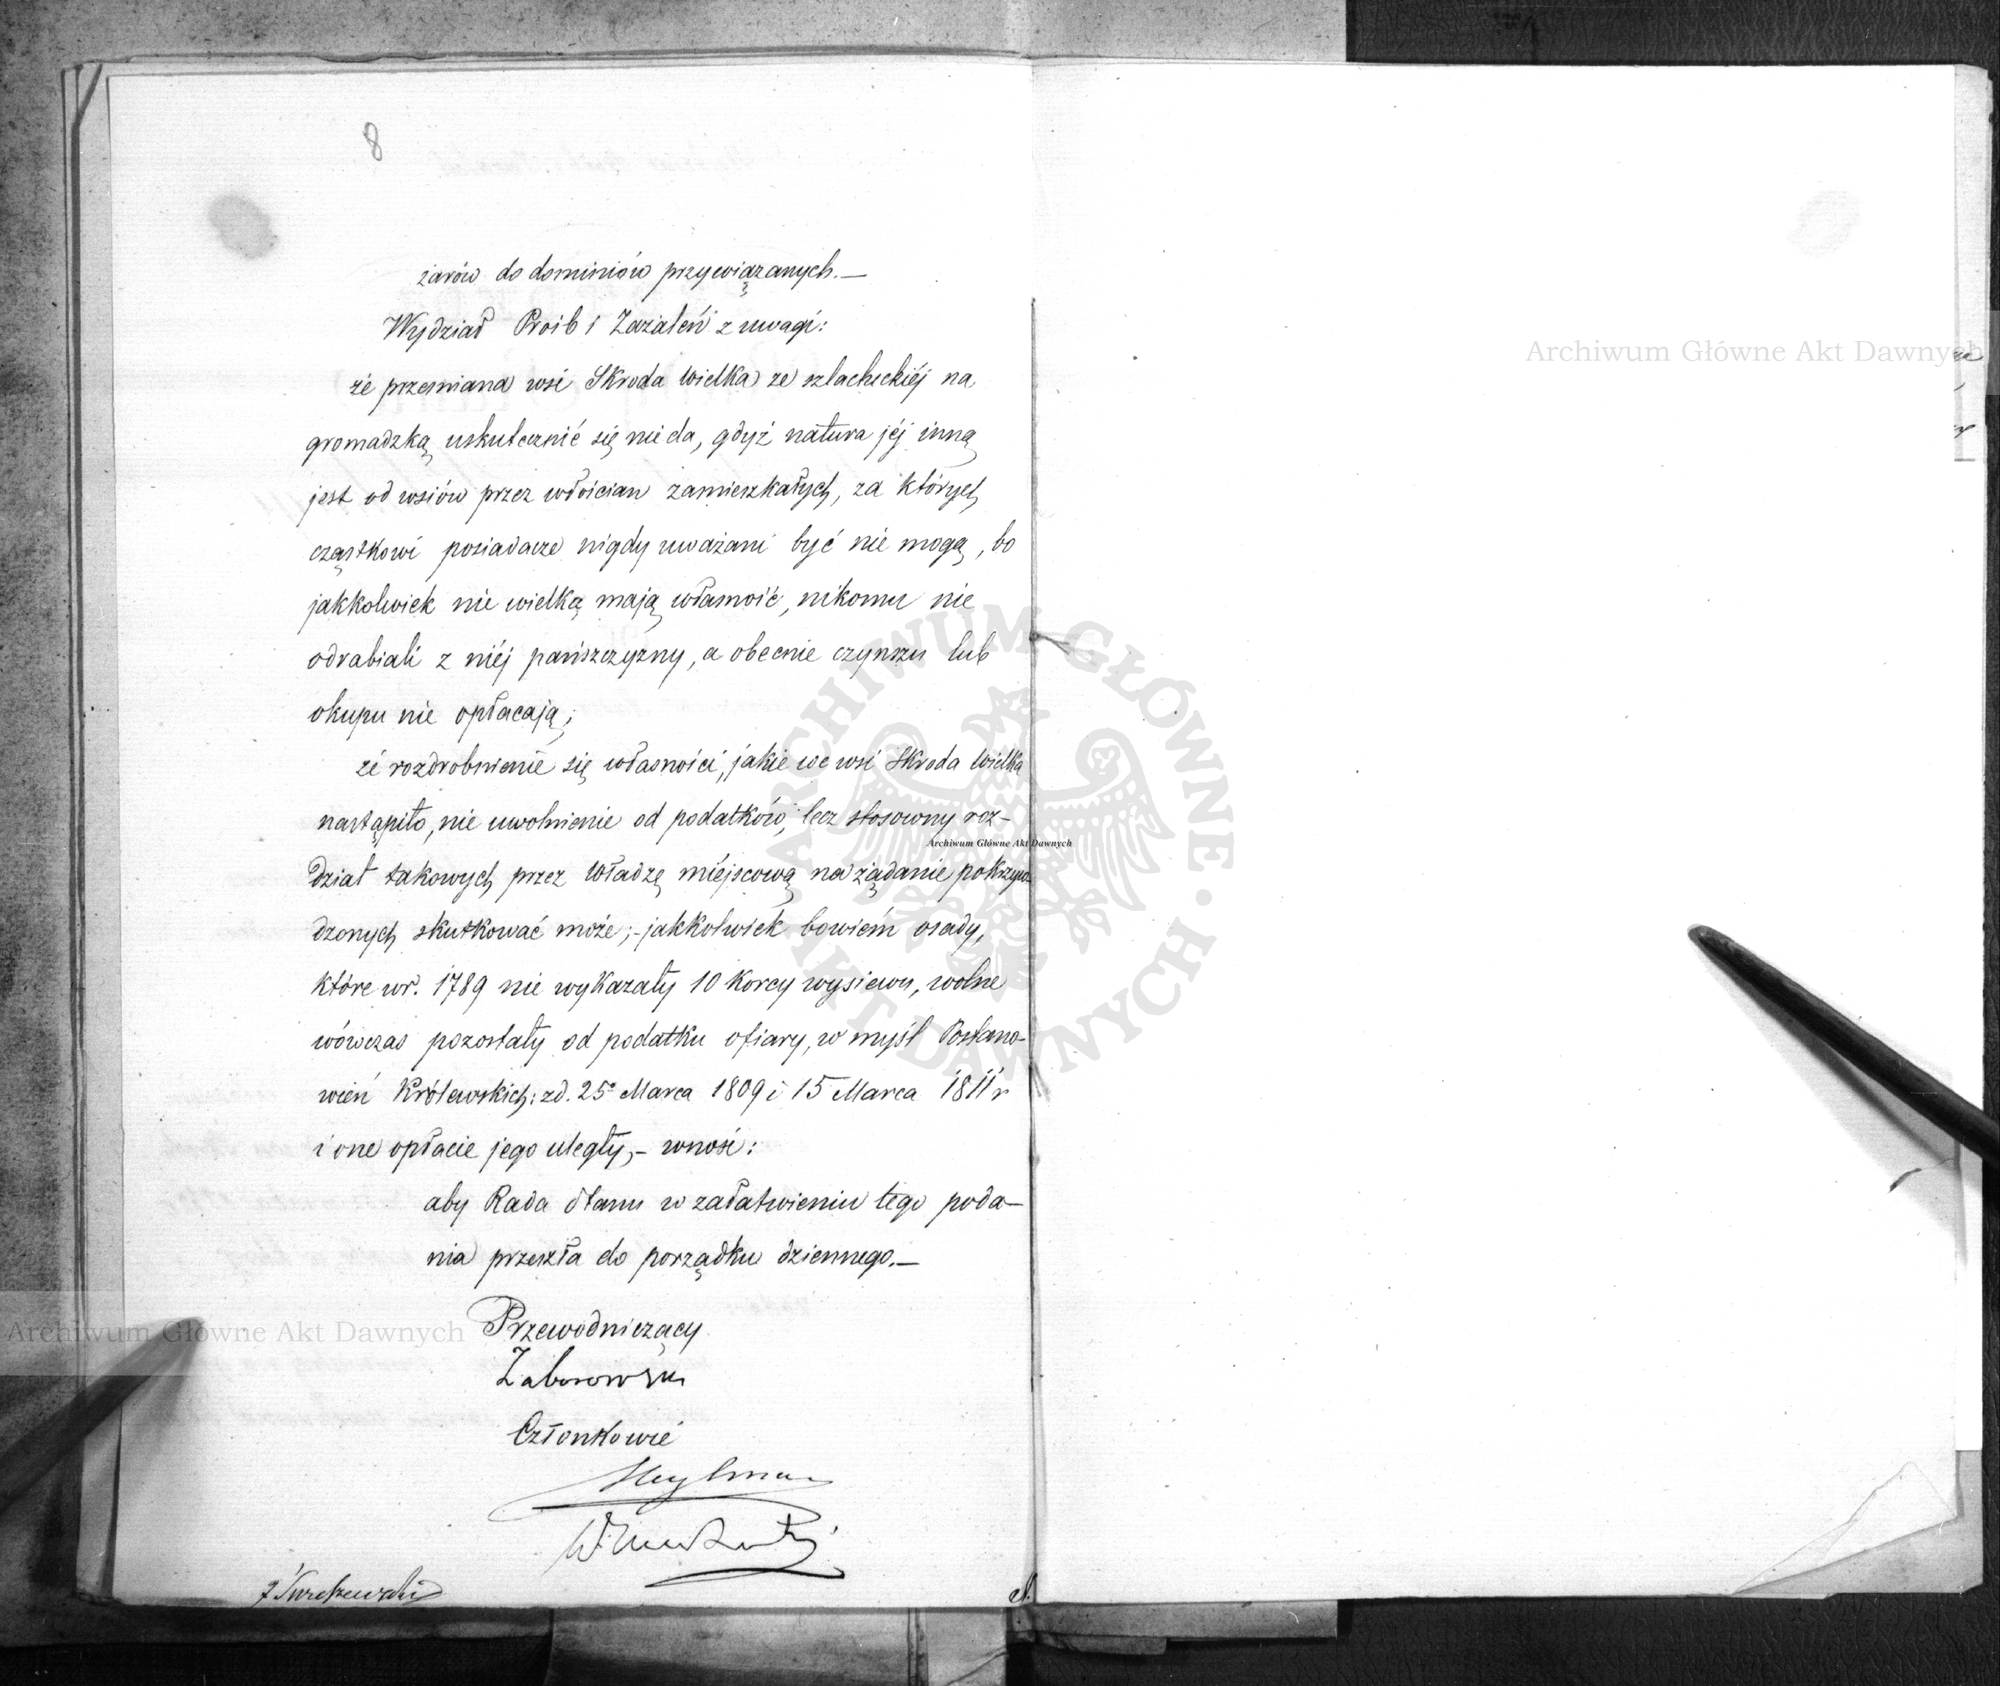 8
żarów do dominiów przywiązanych.—
Wydział Próśb i Zażaleń z uwagi:
że przemiana wsi Skroda Wielka ze szlacheckiéj na
gromadzką uskutecznić się nie da, gdyż natura jéj inną
jest od wsiów przez włościan zamieszkałych, za których
cząstkowi posiadacze nigdy uważani być nie mogą, bo
jakkolwiek nie wielką mają własność, nikomu nie
odrabiali z niéj pańszczyzny, a obecnie czynszu lub
okupu nie opłacają;
że rozdrobnienie się własności, jakie we wsi Skroda Wielka
nastąpiło, nie uwolnienie od podatków, lecz stosowny roz-
dział takowych przez Władzę miéjscową na żądanie pokrzyw-
dzonych skutkować może;- jakkolwiek bowiém osady,
które w r. 1789 nie wykazały 10 korcy wysiewu, wolne
wówczas pozostały od podatku ofiary, w myśl Postano-
wień Królewskich: z d. 25° Marca 1809 i 15 Marca 1811 r
i one opłacie jego uległy,- wnosi:
aby Rada Stanu w załatwieniu tego poda-
nia przeszła do porządku dziennego.—
Przewodniczący
Zaborowski
Członkowie
Heylman
Archiwum Główne Akt Dawnych
Archiwum Główne Akt Dawnych
Archiwum Główne Akt Dawnych
ARCHIWUM GŁÓWNE · AKT DAWNYCH ·